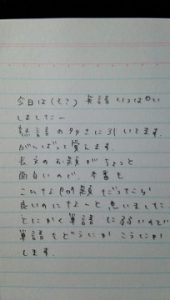 今日は(も?) 英語いっぱい
しました〜
熟語の多さに引いてます。
がんばって覚えます。
長文のお題がちょっと
面白いので、本番も
こいうお題だったら
良いのになーと思いました
とにかく単語に弱いので
単語をどうにかこうにか
します。